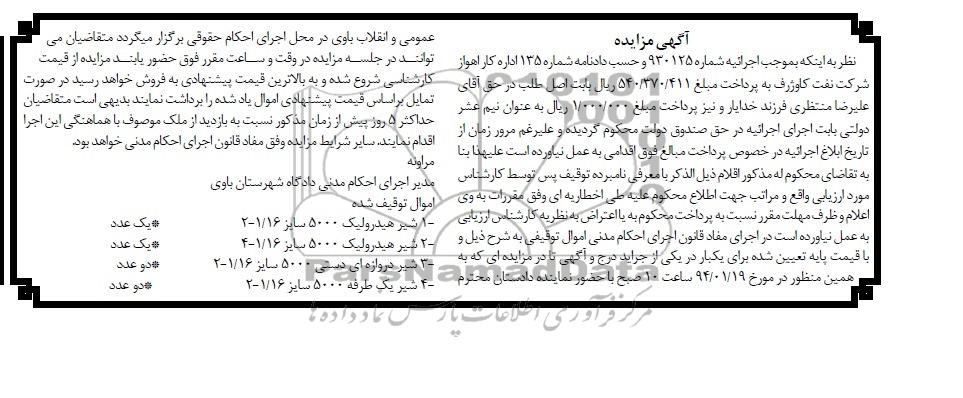 آگهی مزایده
نظر به اینکه بموجب اجرائیه شماره ۹۳۰۱۲۵ و حسب دادنامه شماره ۱۳۵ اداره کار اهواز
شرکت نفت کاوژرف به پرداخت مبلغ ۵۴۰/۳۷۰/۴۱۱ ریال بابت اصل طلب در حق آقای
علیرضا منتظری فرزند خدایار و نیز پرداخت مبلغ ۱/۰۰۰/۰۰۰ ریال به عنوان نیم عشر
دولتی بابت اجرای اجرائیه در حق صندوق دولت محکوم گردیده و علیرغم مرور زمان از
تاریخ ابلاغ اجرائیه در خصوص پرداخت مبالغ فوق اقدامی به عمل نیاورده است علیهذا بنا
به تقاضای محکوم له مذکور اقلام ذیل الذکر با معرفی نامبرده توقیف پس توسط کارشناس
مورد ارزیابی واقع و مراتب جهت اطلاع محکوم علیه طی اخطاریه ای وفق مقررات به وی
اعلام و ظرف مهلت مقرر نسبت به پرداخت محکوم به یا اعتراض به نظریه کارشناس ارزیابی
به عمل نیاورده است در اجرای مفاد قانون اجرای احکام مدنی اموال توقیفی به شرح ذیل و
با قیمت پایه تعیین شده برای یکبار در یکی از جراید درج و آگهی تا در مزایده ای که به
همین منظور در مورخ ۹۴/۰۱/۱۹ ساعت ۱۰ صبح با حضور نماینده دادستان محترم
عمومی و انقلاب باوی در محل اجرای احکام حقوقی برگزار میگردد متقاضیان می
توانند در جلسه مزایده در وقت و ساعت مقرر فوق حضور یابند مزایده از قیمت
کارشناسی شروع شده و به بالاترین قیمت پیشنهادی به فروش خواهد رسید در صورت
تمایل براساس قیمت پیشنهادی اموال یاد شده را برداشت نمایند بدیهی است متقاضیان
حداکثر ۵ روز پیش از زمان مذکور نسبت به بازدید از ملک موصوف با هماهنگی این اجرا
اقدام نمایند. سایر شرایط مزایده وفق مفاد قانون اجرای احکام مدنی خواهد بود.
مراونه
مدیر اجرای احکام مدنی دادگاه شهرستان باوی
اموال توقیف شده
۱- شیر هیدرولیک ۵۰۰۰ سایز ۱/۱۶-۲ *یک عدد
۲- شیر هیدرولیک ۵۰۰۰ سایز ۱/۱۶-۴ *یک عدد
۳- شیر دروازه ای دستی ۵۰۰۰ سایز ۱/۱۶-۲ *دو عدد
۴- شیر یک طرفه ۵۰۰۰ سایز ۱/۱۶-۲ *دو عدد
ParsNamadData
مرکز فرآوری اطلاعات پارس نماد داده ها